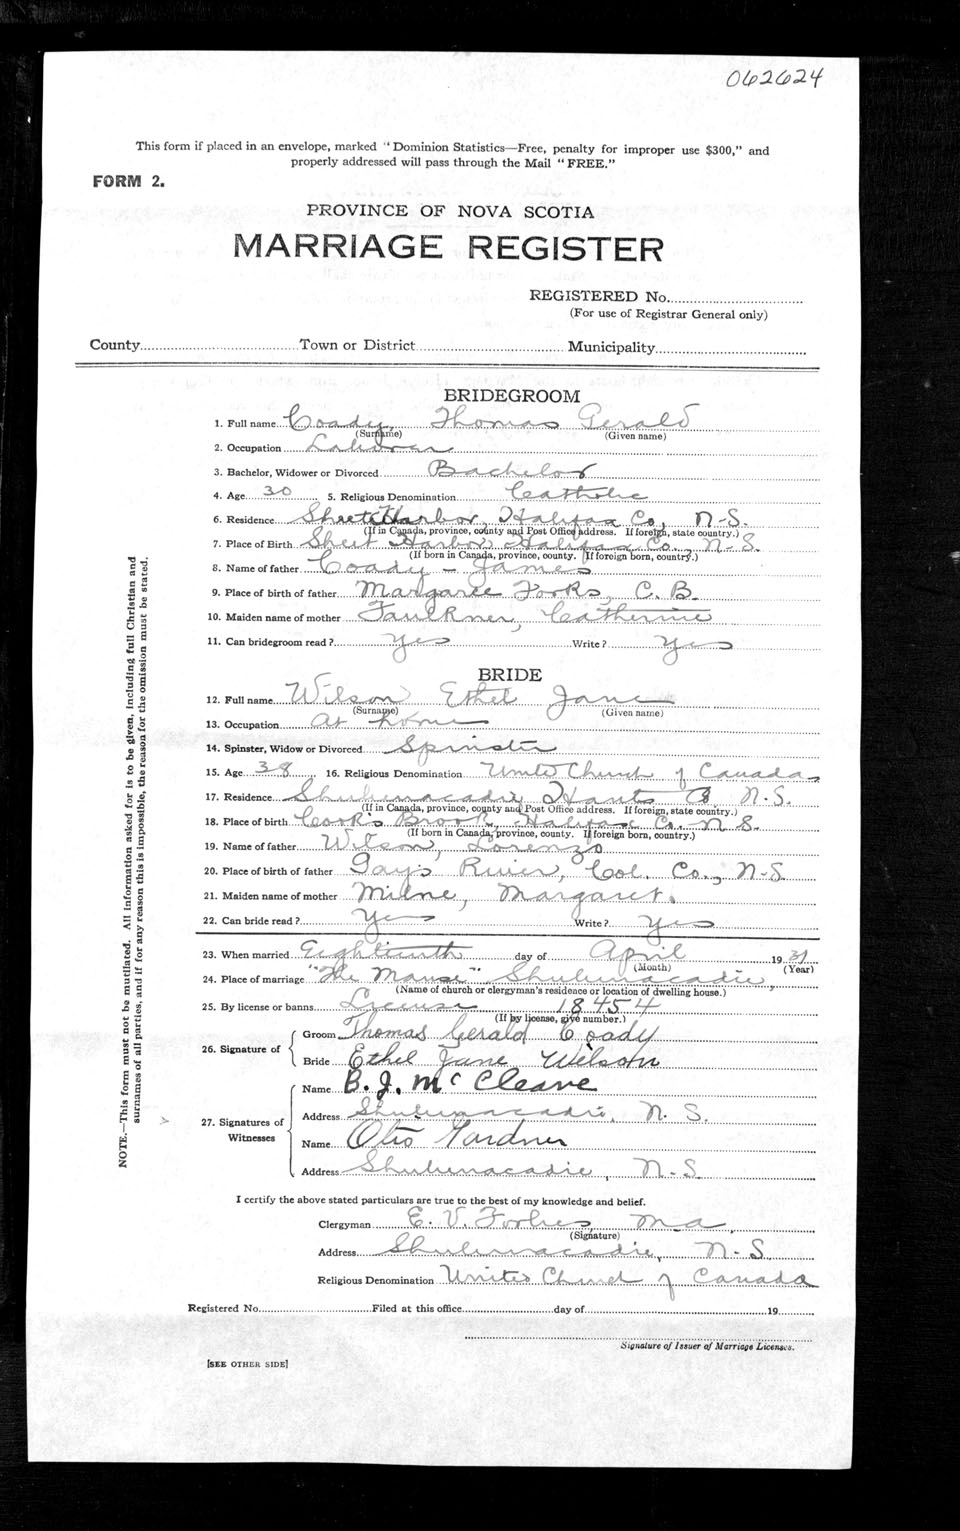 062624
This form if placed in an envelope, marked "Dominion Statistics—Free, penalty for improper use $300," and
properly addressed will pass through the Mail "FREE."
FORM 2.
PROVINCE OF NOVA SCOTIA
MARRIAGE REGISTER
REGISTERED No.
(For use of Registrar General only)
County Town or District Municipality
BRIDEGROOM
1. Full name Coady, Thomas Gerald
(Surname) (Given name)
2. Occupation Laborer
3. Bachelor, Widower or Divorced Bachelor
4. Age 30 5. Religious Denomination Catholic
6. Residence Sheet Harbor, Halifax Co, N-S.
(If in Canada, province, county and Post Office address. If foreign, state country.)
7. Place of Birth Sheet Harbor Halifax Co. N-S.
(If born in Canada, province, county. If foreign born, country.)
8. Name of father Coady - James
9. Place of birth of father Margaree Forks, C. B.
10. Maiden name of mother Faulkner, Catherine
11. Can bridegroom read? Yes Write? Yes
BRIDE
12. Full name Wilson Ethel Jane
(Surname) (Given name)
13. Occupation at home
14. Spinster, Widow or Divorced Spinster
15. Age 38 16. Religious Denomination United Church of Canada
17. Residence Shubenacadie Hants Co N-S.
(If in Canada, province, county and Post Office address. If foreign, state country.)
18. Place of birth Cook's Brook, Halifax Co., N-S.
(If born in Canada, province, county. If foreign born, country.)
19. Name of father Wilson, Lorenzo
20. Place of birth of father Gay's River, Col. Co., N-S.
21. Maiden name of mother Milne, Margaret.
22. Can bride read? Yes Write? Yes
23. When married Eighteenth day of April 1931
(Month) (Year)
24. Place of marriage "The Manse" Shubenacadie,
(Name of church or clergyman's residence or location of dwelling house.)
25. By license or banns License 18454
(If by license, give number.)
26. Signature of Groom Thomas Gerald Coady
Bride Ethel Jane Wilson
27. Signatures of Witnesses Name B. J. McCleave
Address Shubenacadie, N. S.
Name Otis Gardner
Address Shubenacadie, N-S
I certify the above stated particulars are true to the best of my knowledge and belief.
Clergyman E. V. Forbes, M.A.
(Signature)
Address Shubenacadie, N-S
Religious Denomination United Church of Canada
Registered No. Filed at this office day of 19
Signature of Issuer of Marriage Licenses.
[SEE OTHER SIDE]
NOTE.—This form must not be mutilated. All information asked for is to be given, including full Christian and
surnames of all parties, and if for any reason this is impossible, the reason for the omission must be stated.